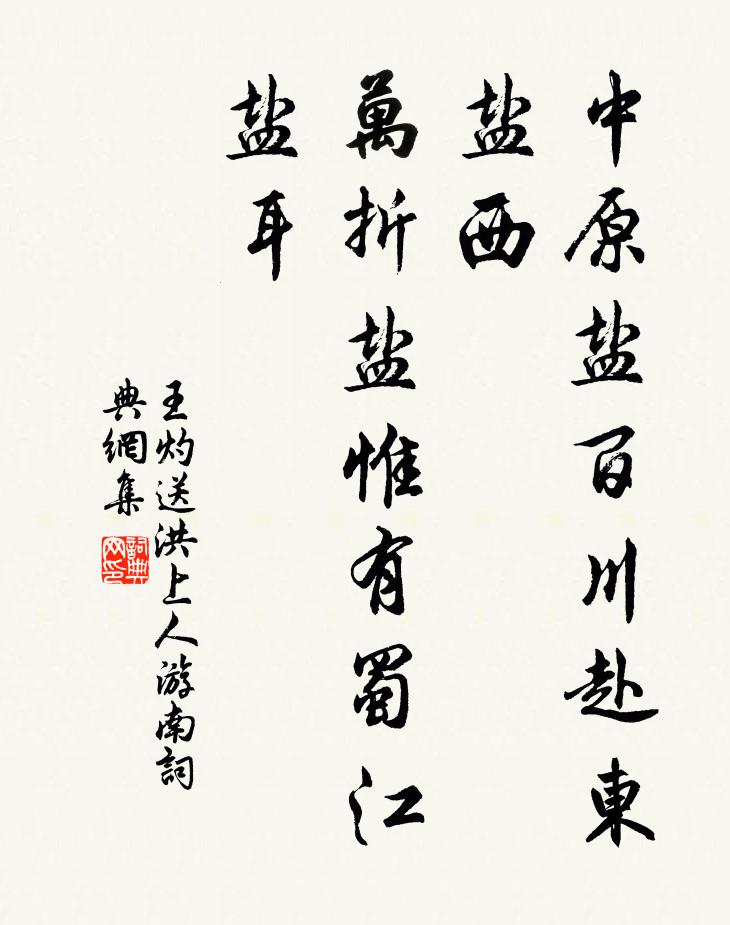 中原盐百川赴東
盐西
萬折盐惟有蜀江
盐耳
王灼送洪上人游南詞
典網集
詞典
网印